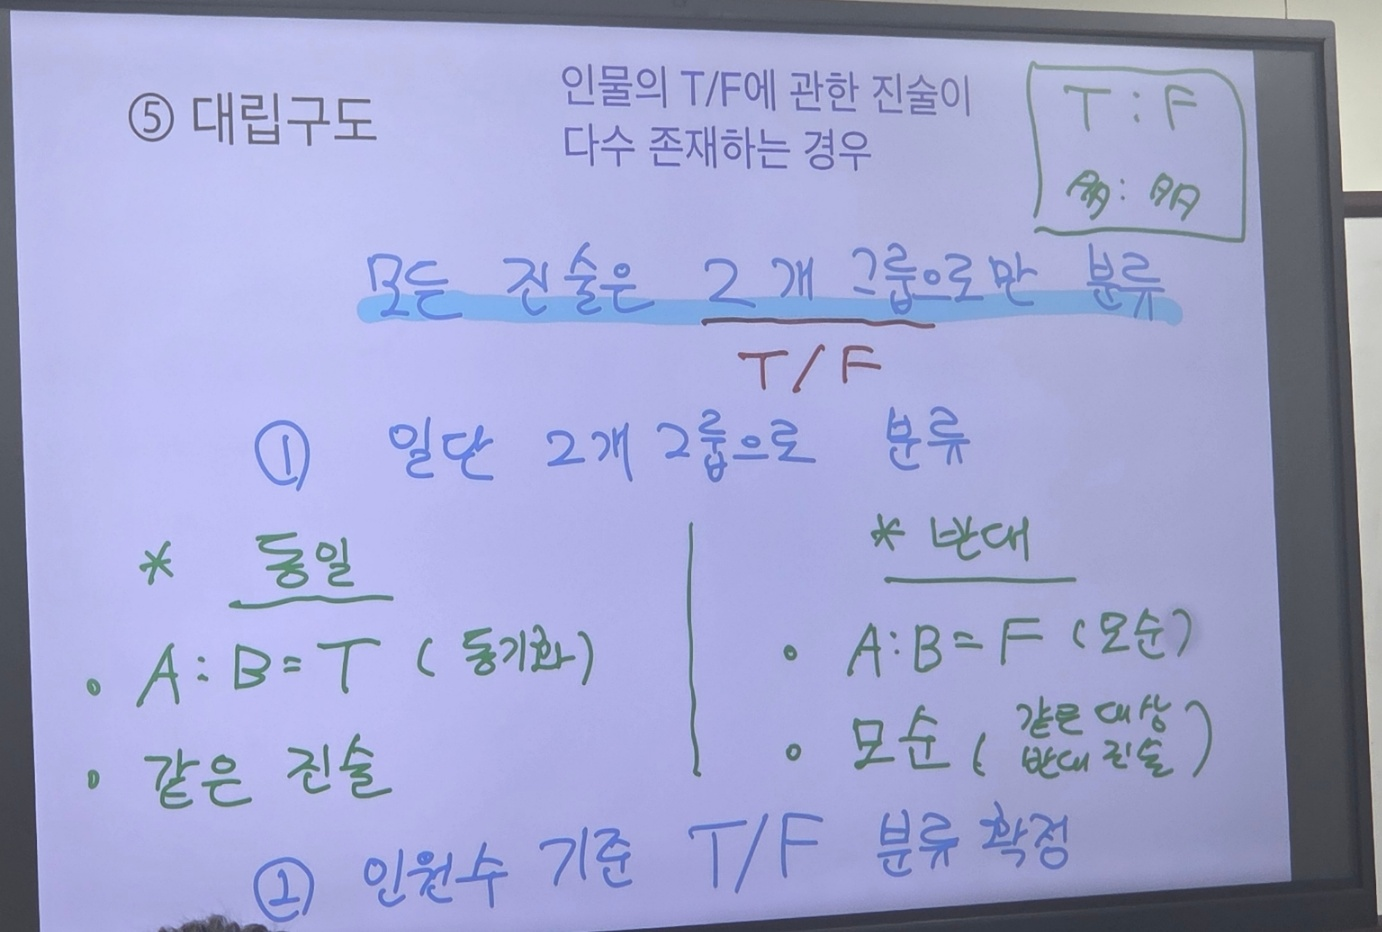 ⑤ 대립구도
인물의 T/F에 관한 진술이
다수 존재하는 경우
T : F
모든 진술은 2개 그룹으로만 분류
T/F
① 일단 2개 그룹으로 분류
* 동일
• A:B=T (동기화)
• 같은 진술
* 반대
• A:B=F (모순)
• 모순 (같은 대상
반대 진술)
② 인원수 기준 T/F 분류 확정